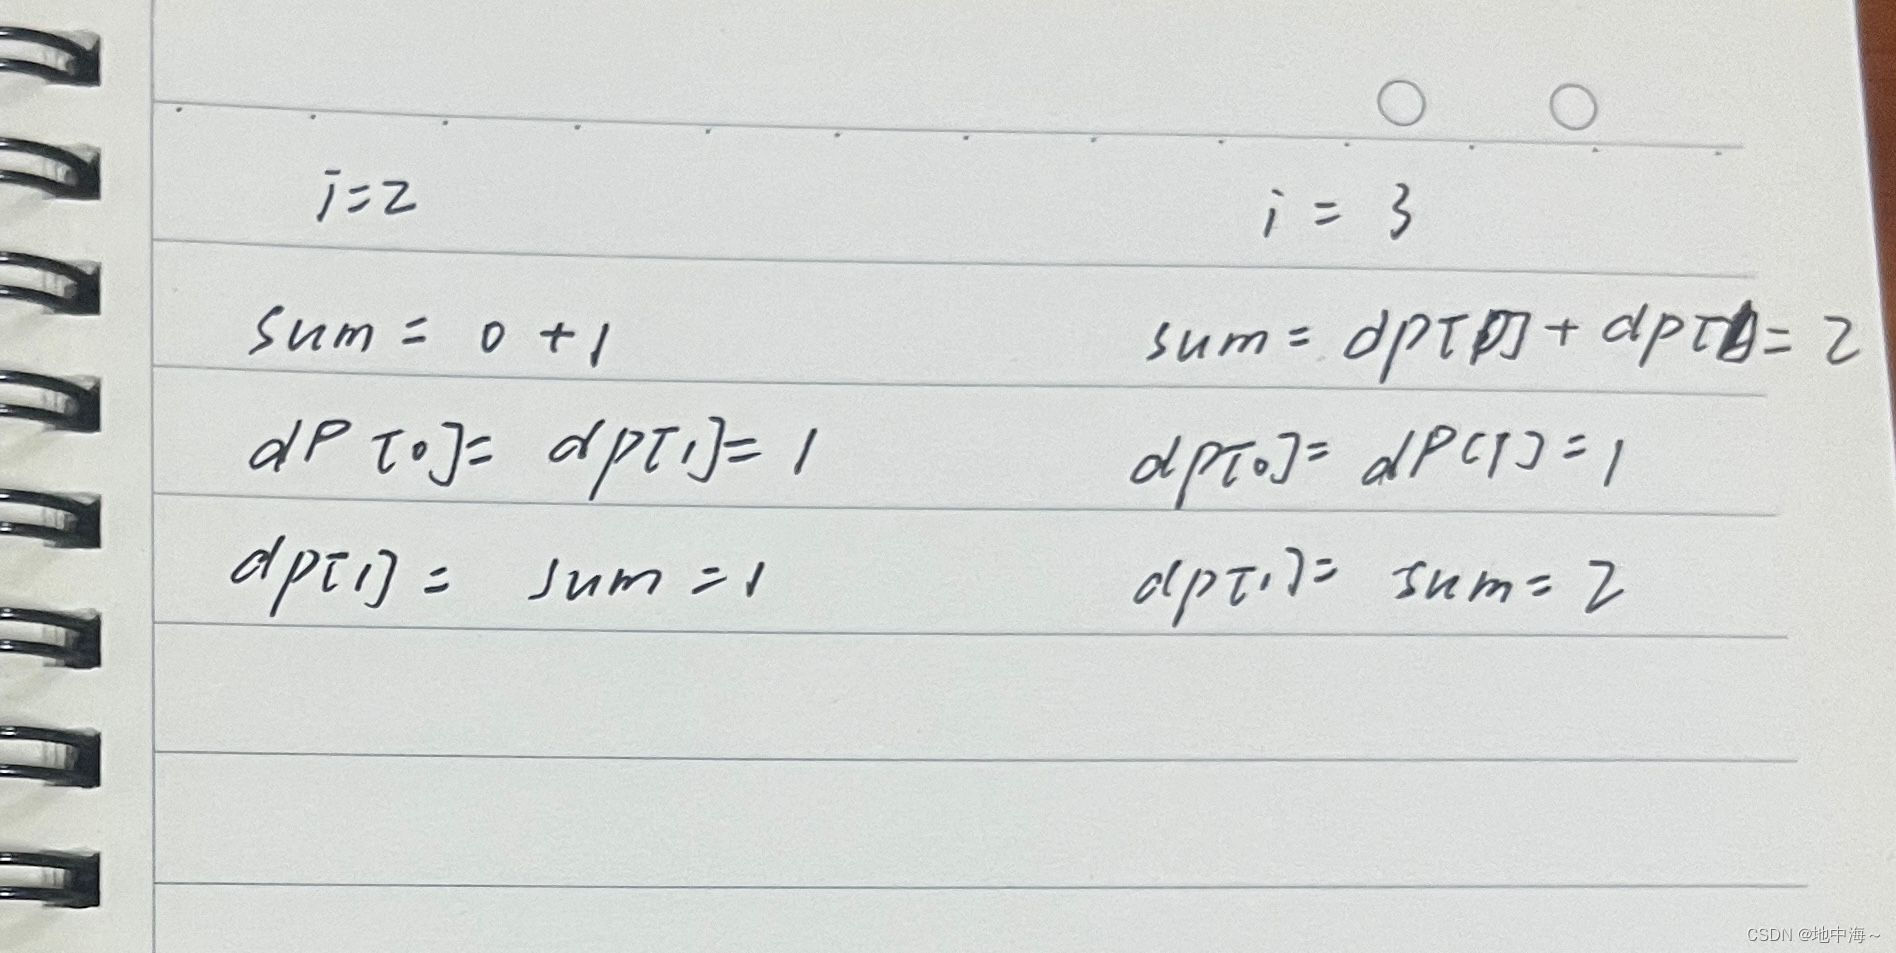 i=2
sum = 0 + 1
dp[0]= dp[1]= 1
dp[1] = sum = 1
i = 3
sum = dp[0] + dp[1]= 2
dp[0]= dp[1]=1
dp[1]= sum= 2
CSDN @地中海~